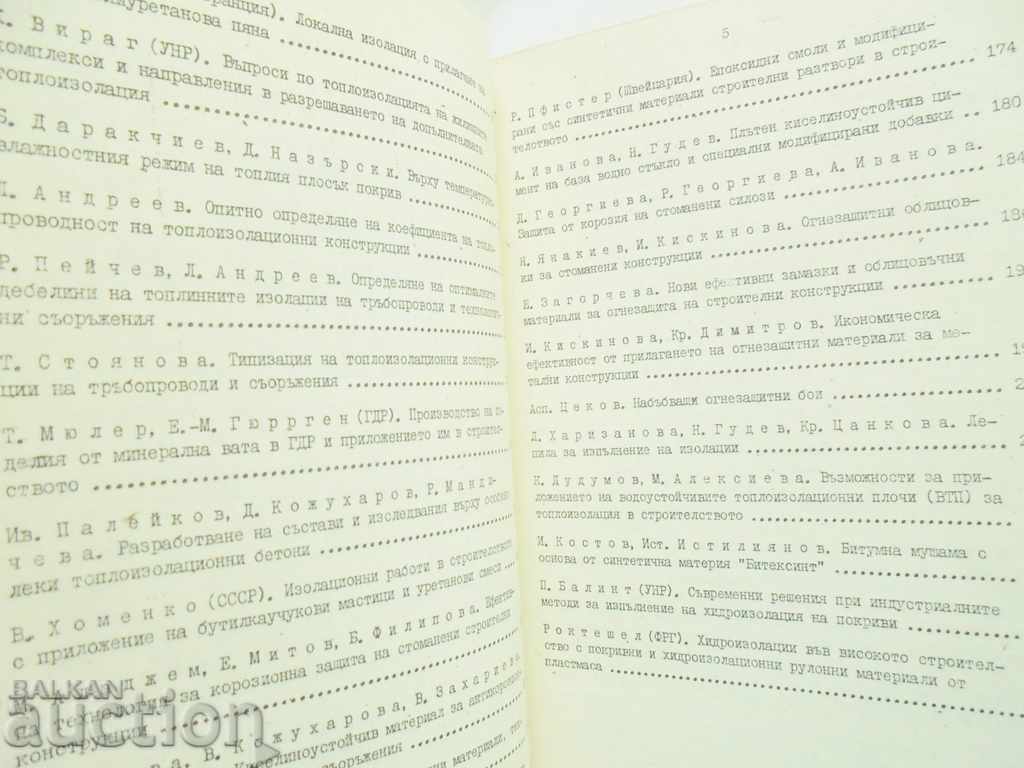 (Франция). Локална изолация с прилагане на
уретанова пяна
К. Вираг (УНР). Въпроси по топлоизолацията на жилищните
комплекси и направления в разрешаването на допълнителната
топлоизолация
Б. Даракчиев, Д. Назърски. Върху температурно-
влажностния режим на топлия плосък покрив
Л. Андреев. Опитно определяне на коефициента на топло-
проводност на топлоизолационни конструкции
Р. Пейчев, Л. Андреев. Определяне на оптималните
дебелини на топлинните изолации на тръбопроводи и технологич-
ни съоръжения
Т. Стоянова. Типизация на топлоизолационни конструк-
ции на тръбопроводи и съоръжения
Т. Мюлер, Е.-М. Гюррген (ГДР). Производство на из-
делия от минерална вата в ГДР и приложението им в строител-
ството
Ив. Палейков, Д. Кожухаров, Р. Манди-
чева. Разработване на състави и изследвания върху особено
леки топлоизолационни бетони
В. Хоменко (СССР). Изолационни работи в строителството
с приложение на бутилкаучукови мастици и уретанови смеси
М. джем, Е. Митов, Б. Филипова. Ефектив-
на технология за корозионна защита на стоманени строителни
конструкции
ва, В. Кожухарова, В. Захариева.
Киселиноустойчив материал за антикорозионна
съоръжения
материали, тех-
5
Р. Пфистер (Швейцария). Епоксидни смоли и модифици-
рани със синтетични материали строителни разтвори в строи-
телството 174
А. Иванова, Н. Гудев. Плътен киселиноустойчив ци-
мент на база водно стъкло и специални модифицирани добавки 180
Д. Георгиева, Р. Георгиева, А. Иванова.
Защита от корозия на стоманени силози 184
Н. Янакиев, И. Кискинова. Огнезащитни облицов-
ки за стоманени конструкции 18
Е. Загорчева. Нови ефективни замазки и облицовъчни
материали за огнезащита на строителни конструкции 19
И. Кискинова, Кр. Димитров. Икономическа
ефективност от прилагането на огнезащитни материали за ме-
тални конструкции 19
Асп. Цеков. Набъбващи огнезащитни бои 2
Д. Харизанова, Н. Гудев, Кр. Цанкова. Ле-
пила за изпълнение на изолации 2
К. Дудумов, М. Алексиева. Възможности за при-
ложението на водоустойчивите топлоизолационни плочи (ВТП) за
топлоизолация в строителството
И. Костов, Ист. Истилиянов. Битумна мушама с
основа от синтетична материя "Битексинт"
П. Балинт (УНР). Съвременни решения при индустриалните
методи за изпълнение на хидроизолация на покриви
Роктешел (ФРГ). Хидроизолации във високото строител-
ство с покривни и хидроизолационни рулонни материали от
пластмаса
BALKAN
auction